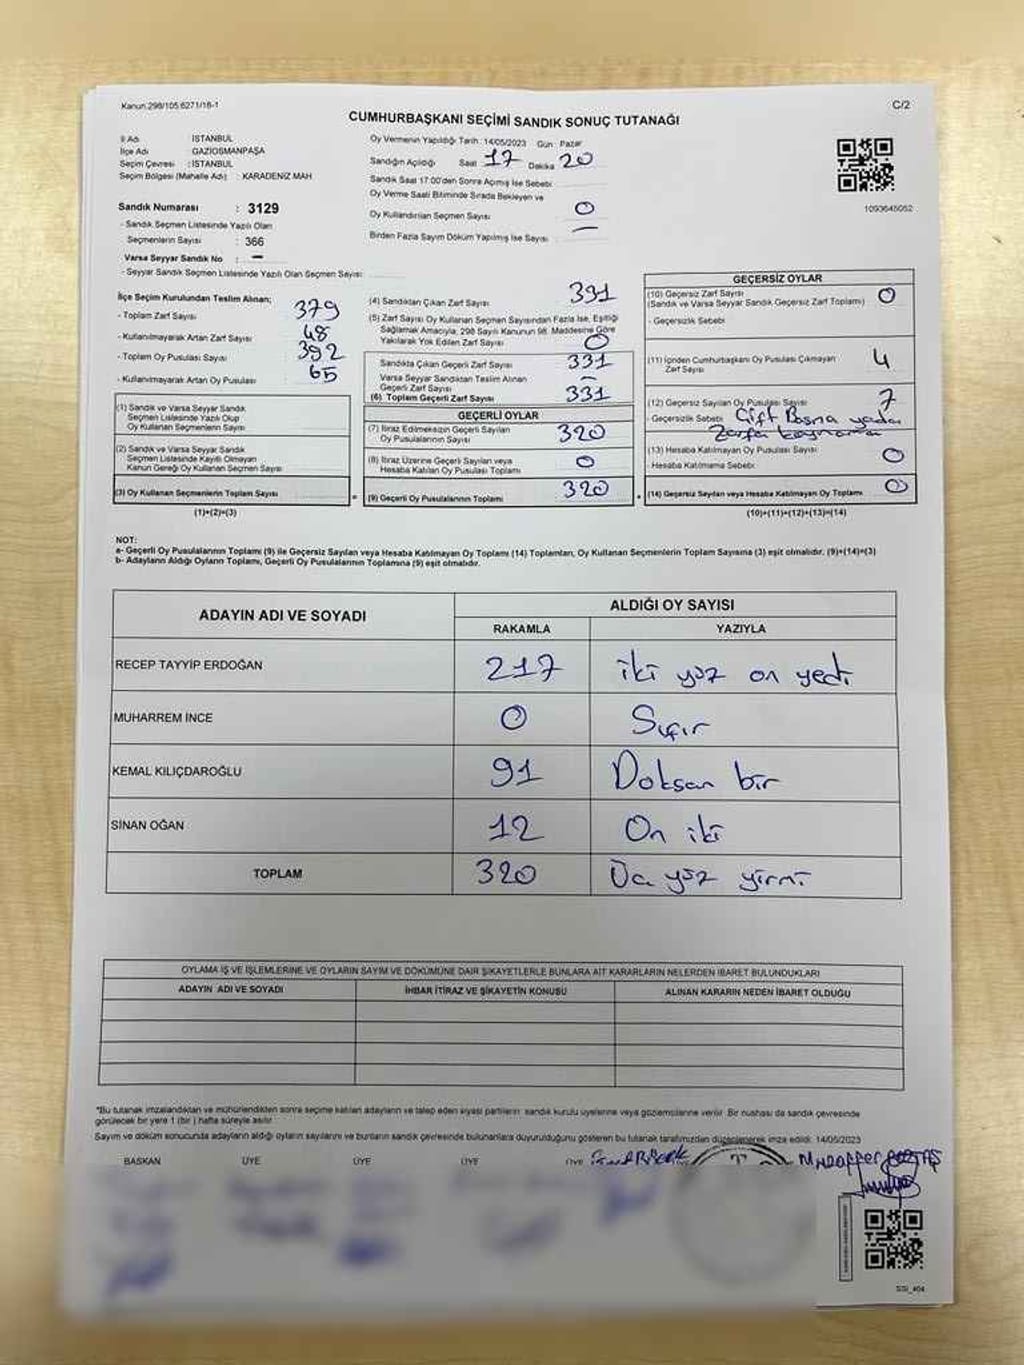 Kanun:298/105:6271/18-1
C/2
CUMHURBAŞKANI SEÇİMİ SANDIK SONUÇ TUTANAĞI
İl Adı : İSTANBUL
İlçe Adı : GAZİOSMANPAŞA
Seçim Çevresi : İSTANBUL
Seçim Bölgesi (Mahalle Adı) : KARADENİZ MAH
Oy Vermenin Yapıldığı Tarih :14/05/2023 Gün : Pazar
Sandığın Açıldığı Saat 17 Dakika 20
Sandık Saat 17:00'den Sonra Açılmış İse Sebebi
Oy Verme Saati Bitiminde Sırada Bekleyen ve
Oy Kullandırılan Seçmen Sayısı 0
Birden Fazla Sayım Döküm Yapılmış İse Sayısı —
1093645052
Sandık Numarası : 3129
- Sandık Seçmen Listesinde Yazılı Olan
Seçmenlerin Sayısı : 366
Varsa Seyyar Sandık No : —
- Seyyar Sandık Seçmen Listesinde Yazılı Olan Seçmen Sayısı
İlçe Seçim Kurulundan Teslim Alınan;
- Toplam Zarf Sayısı : 379
- Kullanılmayarak Artan Zarf Sayısı : 48
- Toplam Oy Pusulası Sayısı : 392
- Kullanılmayarak Artan Oy Pusulası : 65
(1) Sandık ve Varsa Seyyar Sandık
Seçmen Listesinde Yazılı Olup
Oy Kullanan Seçmenlerin Sayısı
(2) Sandık ve Varsa Seyyar Sandık
Seçmen Listesinde Kayıtlı Olmayan
Kanun Gereği Oy Kullanan Seçmen Sayısı
(3) Oy Kullanan Seçmenlerin Toplam Sayısı
(1)+(2)=(3)
(4) Sandıktan Çıkan Zarf Sayısı 331
(5) Zarf Sayısı Oy Kullanan Seçmen Sayısından Fazla İse, Eşitliği
Sağlamak Amacıyla, 298 Sayılı Kanunun 98. Maddesine Göre
Yakılarak Yok Edilen Zarf Sayısı 0
Sandıkta Çıkan Geçerli Zarf Sayısı 331
Varsa Seyyar Sandıktan Teslim Alınan
Geçerli Zarf Sayısı —
(6) Toplam Geçerli Zarf Sayısı 331
GEÇERLİ OYLAR
(7) İtiraz Edilmeksizin Geçerli Sayılan
Oy Pusulalarının Sayısı 320
(8) İtiraz Üzerine Geçerli Sayılan veya
Hesaba Katılan Oy Pusulası Toplamı 0
(9) Geçerli Oy Pusulalarının Toplamı 320
GEÇERSİZ OYLAR
(10) Geçersiz Zarf Sayısı 0
(Sandık ve Varsa Seyyar Sandık Geçersiz Zarf Toplamı)
- Geçersizlik Sebebi
(11) İçinden Cumhurbaşkanı Oy Pusulası Çıkmayan
Zarf Sayısı 4
(12) Geçersiz Sayılan Oy Pusulası Sayısı 7
- Geçersizlik Sebebi Çift Basma yada
Zarfa koymama
(13) Hesaba Katılmayan Oy Pusulası Sayısı 0
- Hesaba Katılmama Sebebi
(14) Geçersiz Sayılan veya Hesaba Katılmayan Oy Toplamı 0
(10)+(11)+(12)+(13)=(14)
NOT:
a- Geçerli Oy Pusulalarının Toplamı (9) ile Geçersiz Sayılan veya Hesaba Katılmayan Oy Toplamı (14) Toplamları, Oy Kullanan Seçmenlerin Toplam Sayısına (3) eşit olmalıdır. (9)+(14)=(3)
b- Adayların Aldığı Oyların Toplamı, Geçerli Oy Pusulalarının Toplamına (9) eşit olmalıdır.
ADAYIN ADI VE SOYADI
ALDIĞI OY SAYISI
RAKAMLA YAZIYLA
RECEP TAYYİP ERDOĞAN 217 iki yüz on yedi
MUHARREM İNCE 0 Sıfır
KEMAL KILIÇDAROĞLU 91 Doksan bir
SİNAN OĞAN 12 On iki
TOPLAM 320 Üç yüz yirmi
OYLAMA İŞ VE İŞLEMLERİNE VE OYLARIN SAYIM VE DÖKÜMÜNE DAİR ŞİKAYETLERLE BUNLARA AİT KARARLARIN NELERDEN İBARET BULUNDUKLARI
ADAYIN ADI VE SOYADI İHBAR İTİRAZ VE ŞİKAYETİN KONUSU ALINAN KARARIN NEDEN İBARET OLDUĞU
*Bu tutanak imzalandıktan ve mühürlendikten sonra seçime katılan adayların ve talep eden siyasi partilerin sandık kurulu üyelerine veya gözlemcilerine verilir. Bir nüshası da sandık çevresinde
görülecek bir yere 1 (bir ) hafta süreyle asılır.
Sayım ve döküm sonucunda adayların aldığı oyların sayılarını ve bunların sandık çevresinde bulunanlara duyurulduğunu gösteren bu tutanak tarafımızdan düzenlenerek imza edildi. 14/05/2023
BAŞKAN ÜYE ÜYE ÜYE ÜYE
Muzaffer
SSİ_404